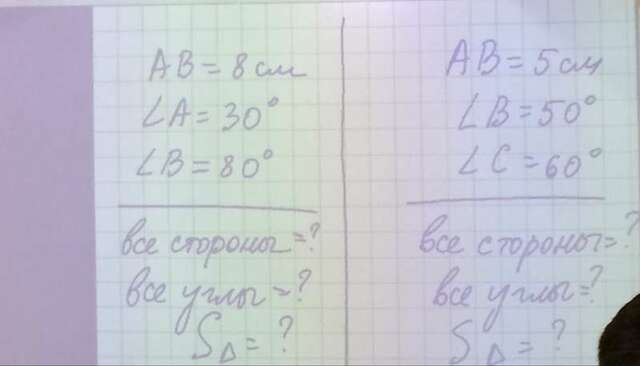 AB = 8 см
∠A = 30°
∠B = 80°
все стороны = ?
все углы = ?
S△ = ?
AB = 5 см
∠B = 50°
∠C = 60°
все стороны = ?
все углы = ?
S△ = ?